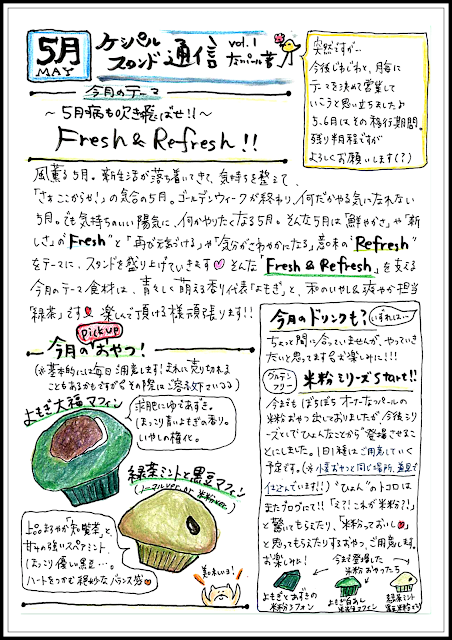 5月
MAY
ケシパル
スタンド通信
vol.1
突然ですが…
今後じわじわと、月毎に
テーマを決めて営業して
いこうと思い立ちました♪
5、6月はその移行期間。
残り半月程ですが
よろしくお願いします(?)
今月のテーマ
～5月病も吹き飛ばせ!!～
Fresh & Refresh!!
風薫る5月。新生活が落ち着いてきて、気持ちを整えて、
「さぁここからぜ!」の気合の5月。ゴールデンウィークが終わり、何だかやる気になれない
5月。でも気持ちのいい陽気に、何かやりたくなる5月。そんな5月は「鮮やかさ」や「新
しさ」の"Fresh"と「再び元気づける」や「気分がさわやかになる」意味の"Refresh"
をテーマに、スタンドを盛り上げていきます♡そんな「Fresh & Refresh」を支える
今月のテーマ食材は、青々しく萌える香り代表「よもぎ」と、和のいやし&爽やか担当
「緑茶」です♥楽しんで頂ける様頑張ります!!
pick up
今月のおやつ!
(※基本的には毎日ご用意します!まれに売り切れる
こともあるかもですが その際はご容赦下さいっ)
よもぎ大福マフィン
求肥にゆであずき。
ほっこり青いよもぎの香り。
いやしの権化。
緑茶ミントと黒豆マフィン
(ノーマルver. or 米粉ver.)
上品まろやか「知覧茶」と、
甘み強いスペアミント、
ほっこり優しい黒豆…。
ハートをつかむ絶妙なバランス感♥
美味いヨ!
今月のドリンクも?
いずれは…
ちょっと間に合っていませんが、やっていき
たいと思ってますのでお楽しみに!!!
グルテン
フリー
米粉シリーズStart!!
今までもぽちぽちオーナーなつパールの
米粉おやつ出しておりましたが今後シリ
ーズとして"ひょんなことから"登場させるこ
とにしました。1日1種はご用意していく
予定です。(※小麦おやつと同じ場所、道具で
仕込んでいます!!)"ひょん"のトコロは
またブログにて!!「え?!これが米粉?!」
と驚いてもらえたり、「米粉っておいし♥」
と思ってもらえたりするおやつ、ご用意します。
お楽しみに!
今まで登場した
米粉おやつたち
よもぎとあずきの
米粉シフォン
よもぎ白あん
米粉生マフィン
緑茶ミント